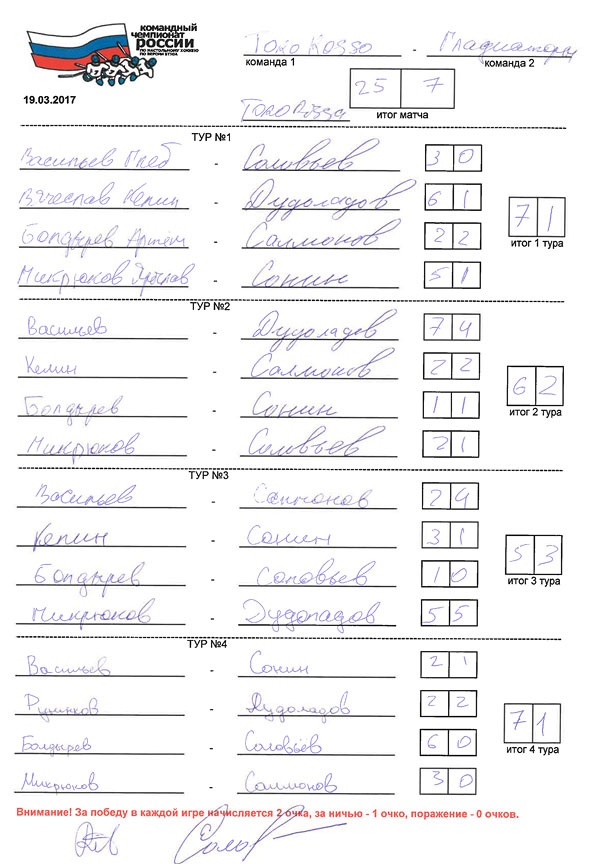 командный
чемпионат
россии
по настольному хоккею
по версии ETHA
Токо Rosso - Гладиаторы
команда 1 команда 2
19.03.2017
25 7
итог матча
ТУР №1
Васильев Глеб - Соловьев 3 0
Вячеслав Келин - Дудоладов 6 1
7 1
итог 1 тура
Болдырев Артём - Саллионов 2 2
Микрюков Ярослав - Сонин 5 1
ТУР №2
Васильев - Дудоладов 7 4
Келин - Саллионов 2 2
6 2
итог 2 тура
Болдырев - Сонин 1 1
Микрюков - Соловьев 2 1
ТУР №3
Васильев - Саллионов 2 4
Келин - Сонин 3 1
5 3
итог 3 тура
Болдырев - Соловьев 1 0
Микрюков - Дудоладов 5 5
ТУР №4
Васильев - Сонин 2 1
- Дудоладов 2 2
7 1
итог 4 тура
Болдырев - Соловьёв 6 0
Микрюков - Саллионов 3 0
Внимание! За победу в каждой игре начисляется 2 очка, за ничью - 1 очко, поражение - 0 очков.